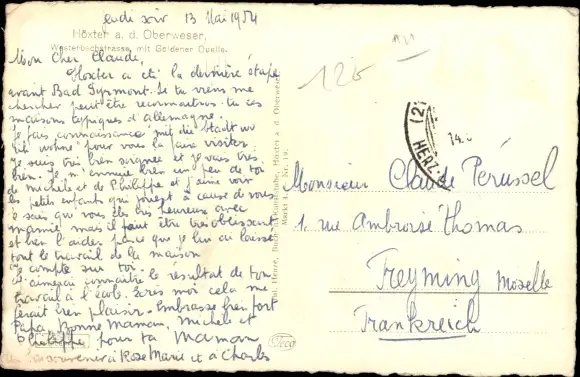 jeudi soir 13 Mai 1954
Höxter a. d. Oberweser,
Westerbachstrasse, mit Goldener Quelle.
Mon cher Claude,
Höxter a été la dernière étape
avant Bad Pyrmont. Si tu viens me
chercher peut être reconnaitras tu ces
maisons typiques d'Allemagne.
Je fais connaissance "mit die Stadt wo
ich wohne" pour vous la faire visiter.
Je suis très bien soignée et je vais très
bien. Je m'ennuie bien un peu de toi
de Michèle et de Philippe et j'aime voir
les petits enfants qui jouent à cause de vous
Je sais que vous êtes très heureux avec
mamie mais il faut être très obéissant
et bien l'aider parce que je lui ai laissé
tout le travail de la maison
Je compte sur toi.
J'aimerai connaître le résultat de ton
travail à l'école. Ecris moi cela me
ferait bien plaisir. Embrasse bien fort
Papa, Bonne Maman, Michèle et
Philippe pour ta Maman
souvenir à Rose Marie et à Charles
Höxter a. d. Oberweser
Markt 1. Nr. 19.
126
(2
HERZ
14.
Monsieur Claude Pérussel
1 rue Ambroise Thomas
Freyming Moselle
Frankreich